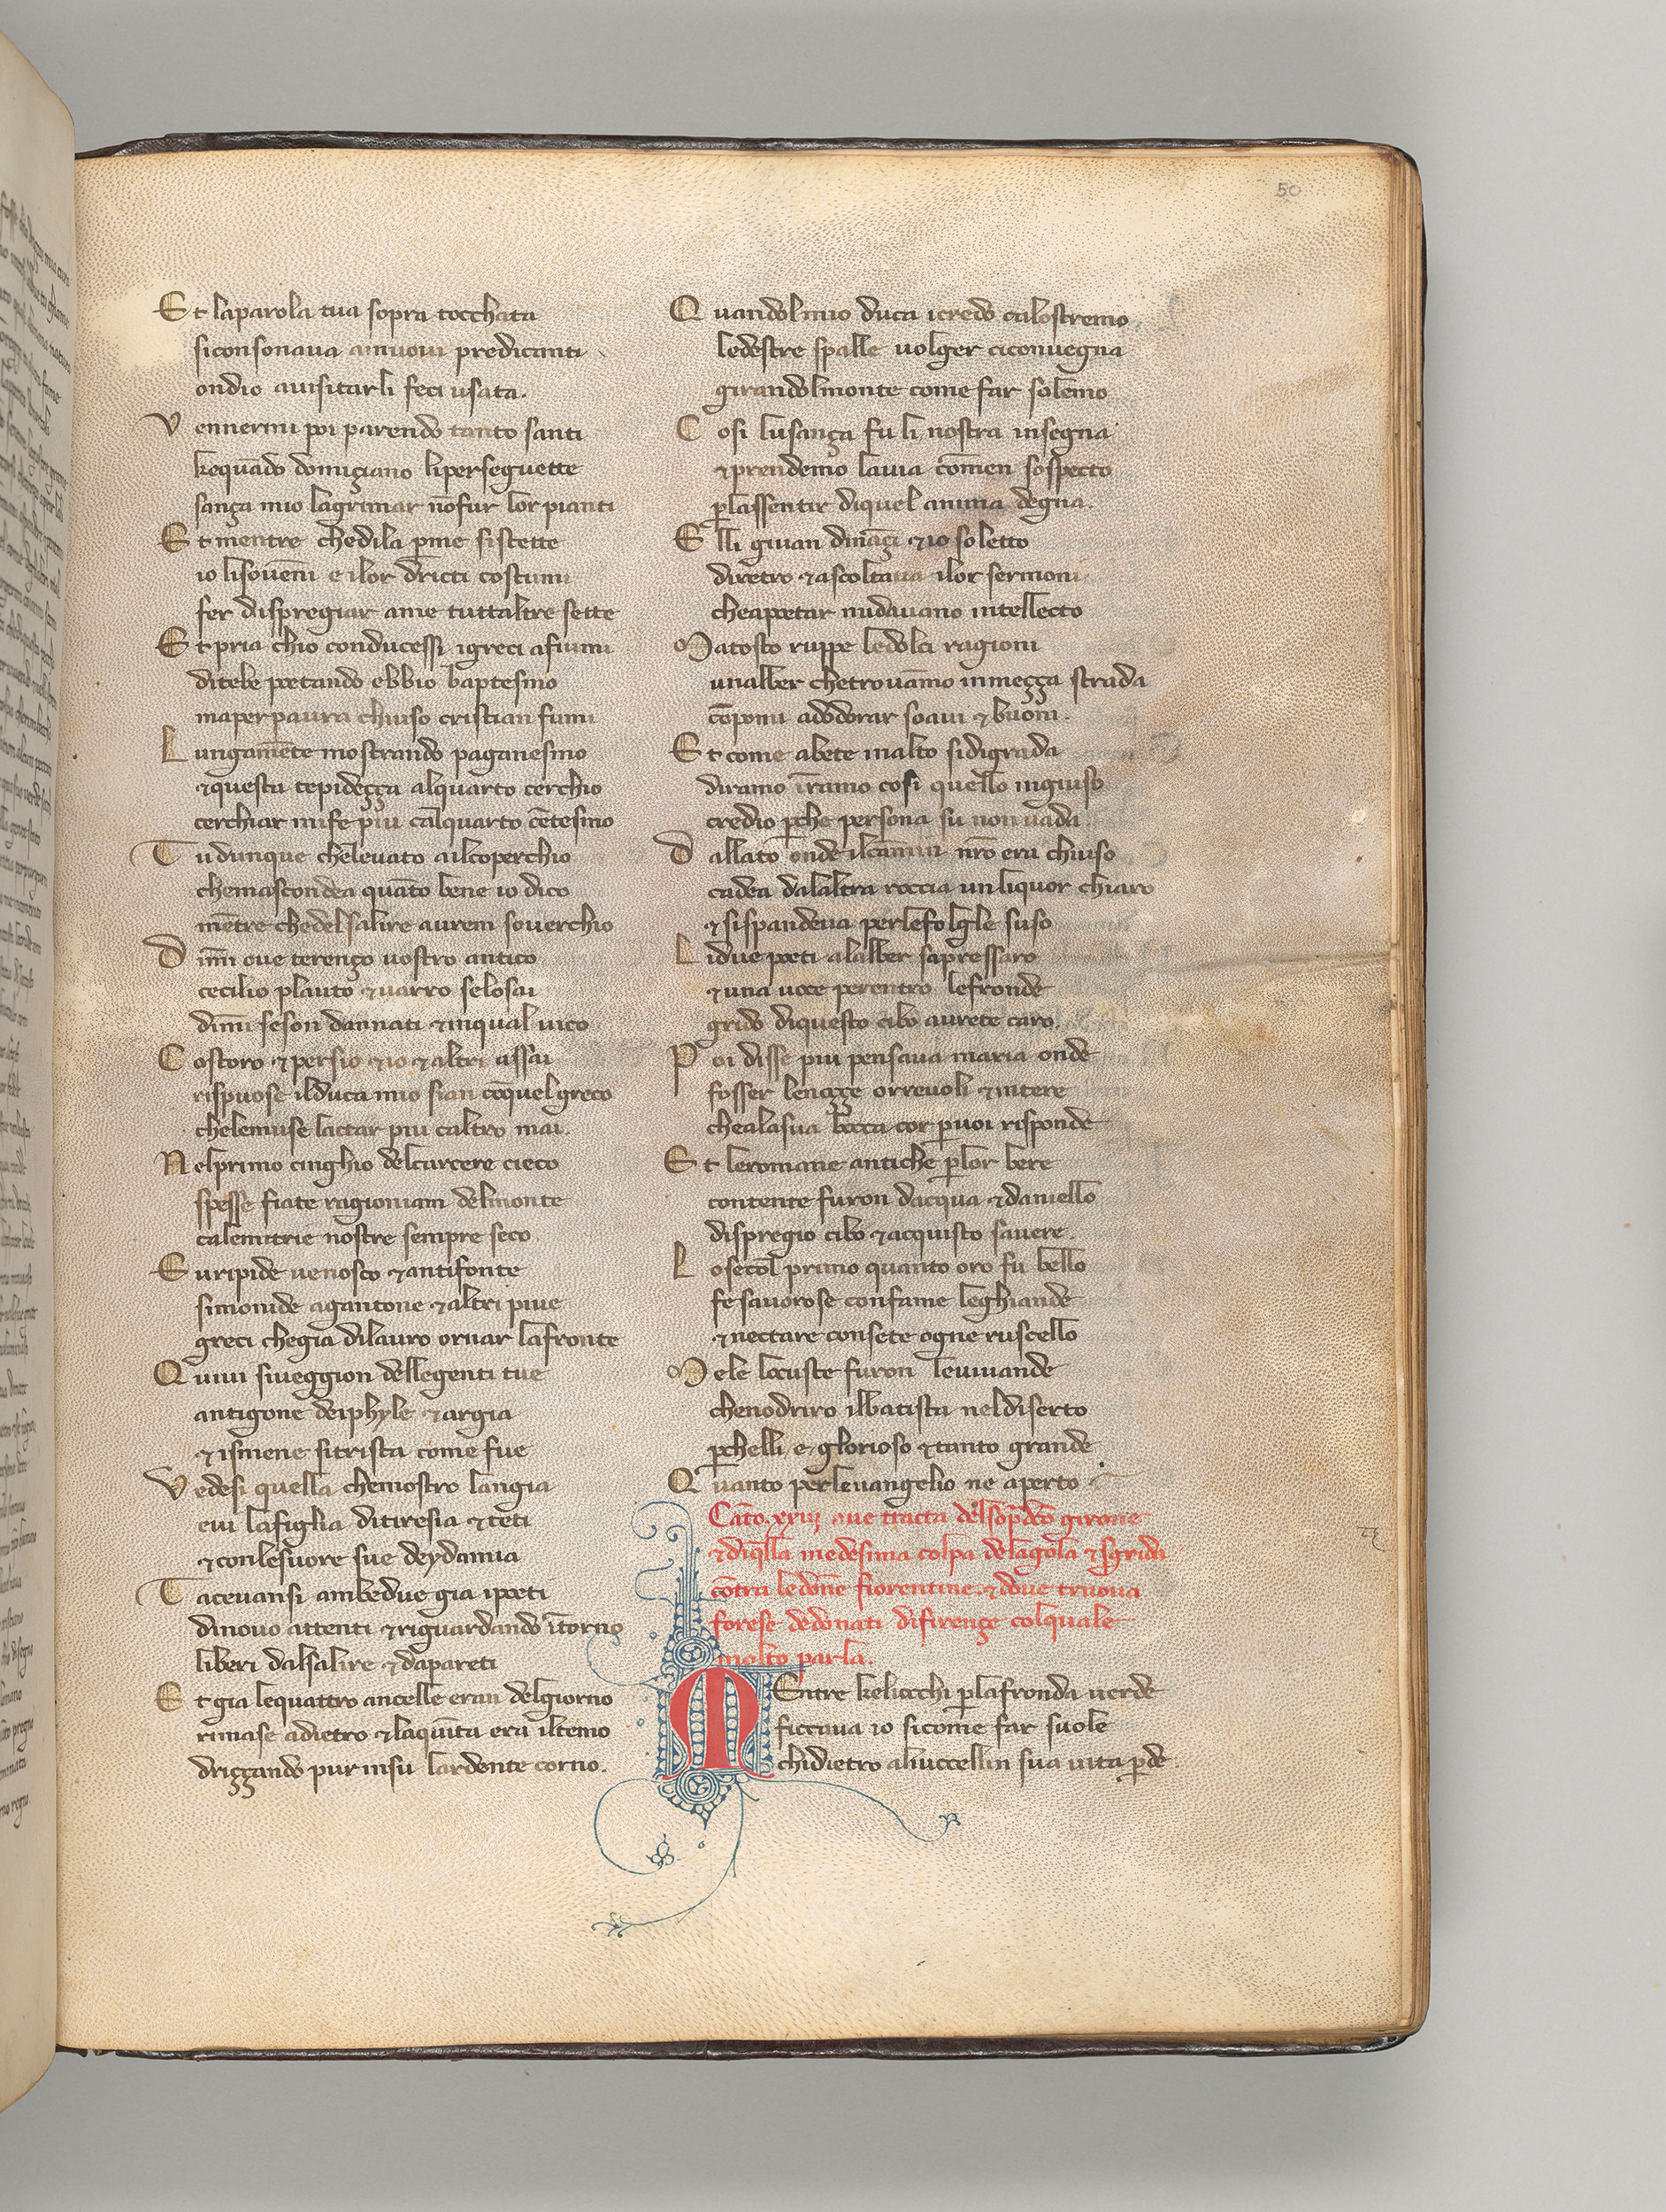 50
Et laparola tua sopra tocchata
siconsonaua ainuoui predicanti
ondio auisitarli feci usata.
Vennermi poi parendo tanto santi
kequādo domiçiano liperseguette
sança mio lagrimar nōfur lor pianti
Et mentre chedila ꝑme sistette
io lisouēni e ilor dricti costumi
fer dispregiar ame tuttaltre sette
Et pria chio conducessi igreci afiumi
ditebe poetando ebbio baptesmo
maper paura chiuso cristian fumi
Lungamēte mostrando paganesmo
⁊questa tepideçça alquarto cerchio
cerchiar mife piu cālquarto cētesmo
Tu dunque cheleuato ailcoperchio
chemascondea quāto bene io dico
mētre chedelsalire aurem souerchio
Dimi oue terenço uostro antico
cecilio plauto ⁊uarro selosai
dimi seson dannati ⁊inqual uico
Costoro ⁊persio ⁊io ⁊altri assai
rispuose ilduca mio sian cōquel greco
chelemuse lactar piu caltro mai.
Nelprimo cinghio delcarcere cieco
spesse fiate ragioniam delmonte
calenutrie nostre sempre seco
Euripide uenosco ⁊antifonte
simonide agantone ⁊altri piue
greci chegia dilauro ornar lafronte
Quiui siueggion dellegenti tue
antigone deiphyle ⁊argia
⁊ismene sitrista come fue
Vedesi quella chemostro langia
eui lafiglia ditiresia ⁊teti
⁊conlesuore sue deydamia
Taceuansi ambedue gia ipoeti
dinouo attenti ⁊riguardando ītorno
liberi dalsalire ⁊dapareti
Et gia lequattro ancelle eran delgiorno
rimase adietro ⁊laquīta era iltemo
driççando pur insu lardente corno.
Quandolmio duca icredo calostremo
ledestre spalle uolger ciconuegna
girandolmonte come far solemo
Cosi lusança fu li nostra insegna
⁊prendemo lauia cōmen sospecto
ꝑlassentir diquel anima degna.
Elli giuan dināçi ⁊io soletto
diretro ⁊ascoltaua ilor sermoni
cheapoetar midauano intellecto
Matosto ruppe ledolci ragioni
unalber chetrouāmo inmeçça strada
cōpomi adodorar soaui ⁊buoni.
Et come abete inalto sidigrada
diramo īramo cosi quello ingiuso
credio ꝑche persona su non uada.
Dallato onde ilcamin nr̄o era chiuso
cadea dalaltra roccia un liquor chiaro
⁊sispandeua perlefoglle suso
Lidue poeti alalber sapressaro
⁊una uoce perentro lefronde
grido diquesto cibo aurete caro.
Poi disse piu pensaua maria onde
fosser lenoçce orreuoli ⁊intere
chealasua bocca cor ꝑuoi risponde
Et leromane antiche ꝑlor bere
contente furon dacqua ⁊daniello
dispregio cibo ⁊acquisto sauere.
Losecol primo quanto oro fu bello
fe sauorose confame leghiande
⁊nectare consete ogne ruscello
Mele locuste furon leuiuande
chenodriro ilbatista neldiserto
ꝑchelli e glorioso ⁊tanto grande
Quanto perleuangelio ne aperto
Cāto. xxiij oue tracta delsop̄dc̄o girone
⁊diq̄lla medesima colpa delagola ⁊sgrida
cōtra ledōne fiorentine. ⁊doue truoua
forese dedonati difirençe colquale
molto parla.
MEntre keliocchi ꝑlafronda uerde
ficcaua io sicome far suole
chidietro aliuccellin sua uita ꝑde